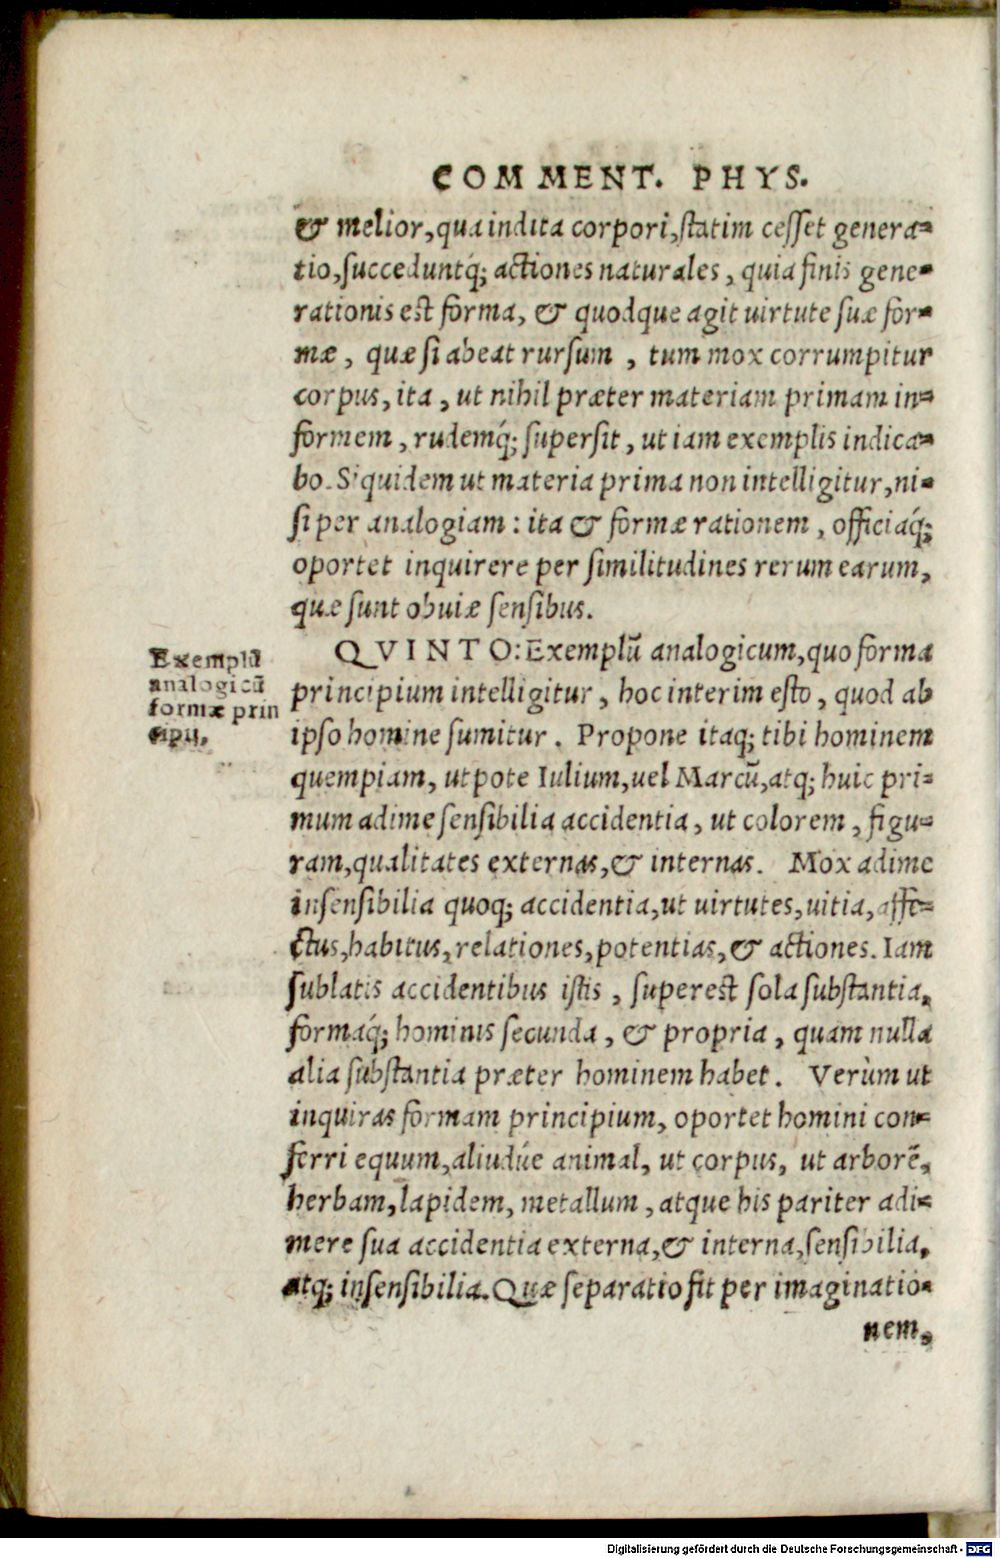 COMMENT. PHYS.
& melior, qua indita corpori, statim cesset genera=
tio, succeduntq́; actiones naturales, quia finis gene=
rationis est forma, & quodque agit uirtute suæ for=
mæ, quæ si abeat rursum, tum mox corrumpitur
corpus, ita, ut nihil præter materiam primam in=
formem, rudemq́; supersit, ut iam exemplis indica=
bo. Siquidem ut materia prima non intelligitur, ni=
si per analogiam: ita & formæ rationem, officiaq́;
oportet inquirere per similitudines rerum earum,
quæ sunt obuiæ sensibus.
QVINTO: Exemplũ analogicum, quo forma
principium intelligitur, hoc interim esto, quod ab
ipso homine sumitur. Propone itaq; tibi hominem
quempiam, utpote Iulium, uel Marcũ, atq; huic pri=
mum adime sensibilia accidentia, ut colorem, figu=
ram, qualitates externas, & internas. Mox adime
insensibilia quoq; accidentia, ut uirtutes, uitia, affe=
ctus, habitus, relationes, potentias, & actiones. Iam
sublatis accidentibus istis, superest sola substantia,
formaq́; hominis secunda, & propria, quam nulla
alia substantia præter hominem habet. Verùm ut
inquiras formam principium, oportet homini con=
ferri equum, aliudúe animal, ut corpus, ut arborẽ,
herbam, lapidem, metallum, atque his pariter adi=
mere sua accidentia externa, & interna, sensibilia,
atq; insensibilia. Quæ separatio fit per imaginatio=
nem,
Exemplũ
analogicũ
formæ prin
cipij.
Digitalisierung gefördert durch die Deutsche Forschungsgemeinschaft - DFG